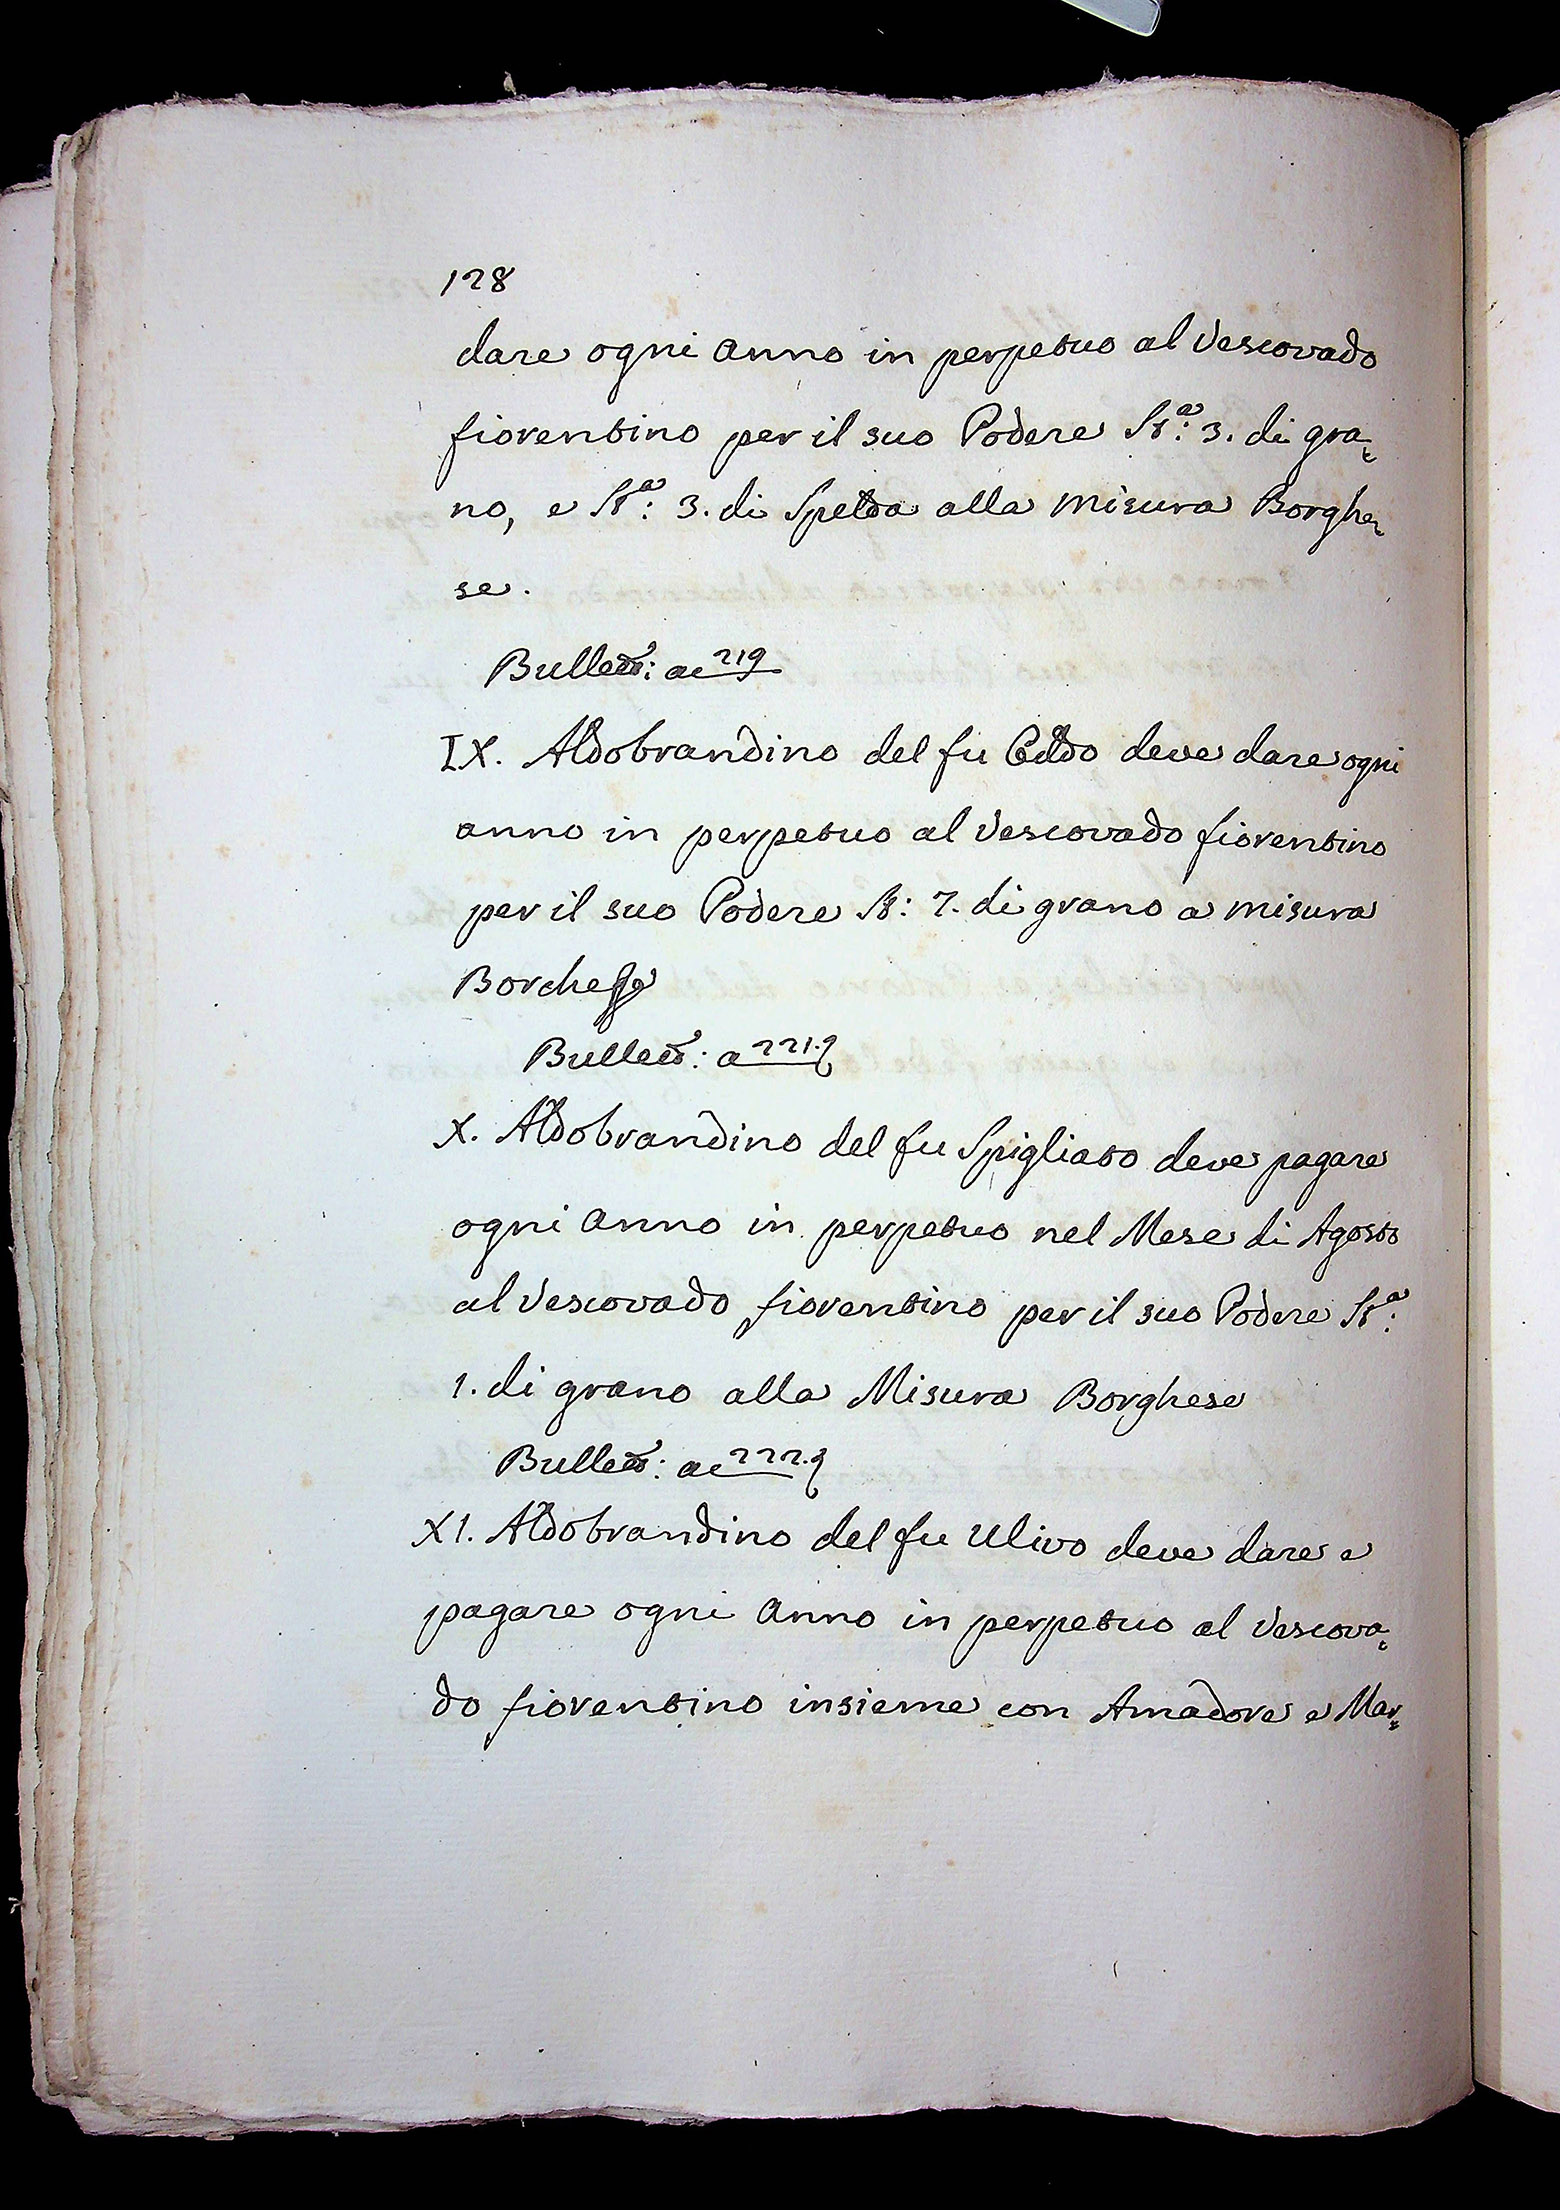 128
dare ogni anno in perpetuo al Vescovado
fiorentino per il suo Podere St.ª: 3. di gra-
no, e St.ª: 3. di Spelda alla misura Borghe-
se.
Bullett: ac 219
IX. Aldobrandino del fu deve dare ogni
anno in perpetuo al Vescovado fiorentino
per il suo Podere St: 7. di grano a misura
Borchese
Bullett: a 221.
X. Aldobrandino del fu Spigliato deve pagare
ogni anno in perpetuo nel Mese di Agosto
al Vescovado fiorentino per il suo Podere St.ª:
1. di grano alla Misura Borghese
Bullett: ac 222.
XI. Aldobrandino del fu Ulivo deve dare e
pagare ogni anno in perpetuo al Vescova-
do fiorentino insieme con Amadore e Mar-